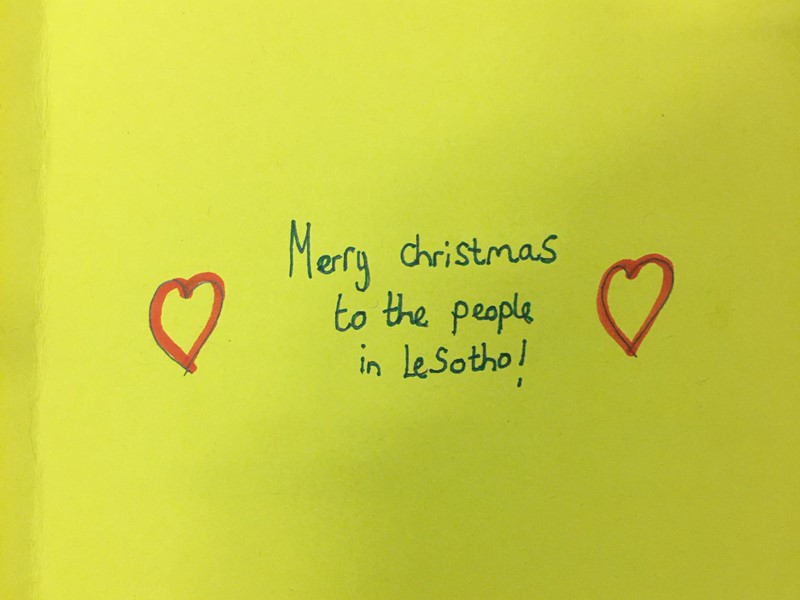 Merry christmas
to the people
in Lesotho!